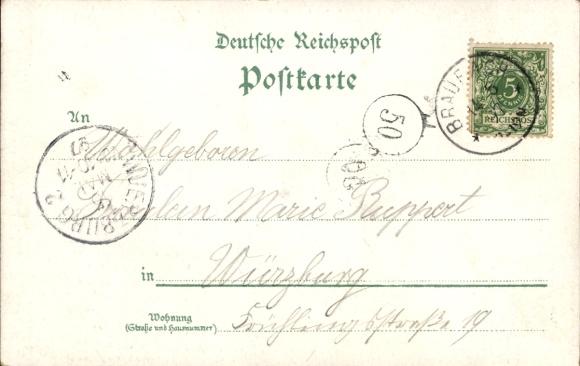 Deutsche Reichspost
Postkarte
An
Wohlgeboren
Fräulein Marie Ruppert
in Würzburg
Wohnung
(Straße und Hausnummer)
Frühlingsstraße 19
5
PFENNIG
REICHSPOST
BRAUE
50
50
WUERZBURG 2
MAR